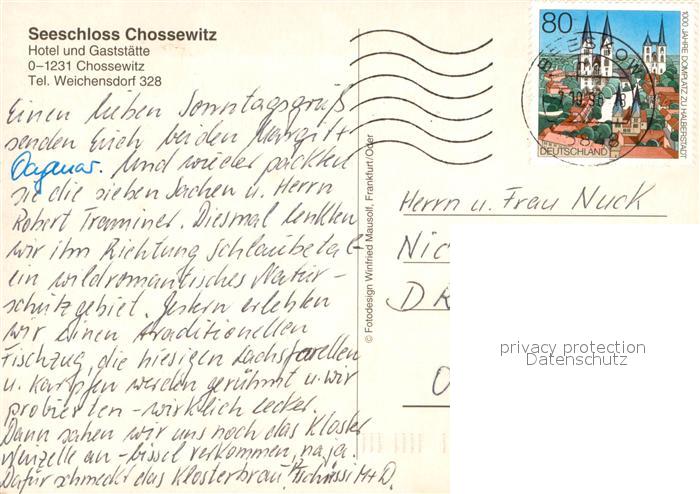 Seeschloss Chossewitz
Hotel und Gaststätte
O–1231 Chossewitz
Tel. Weichensdorf 328
Einen lieben Sonntagsgruß
senden Euch beiden Margitt
Dagmar. Und wieder packten
sie die sieben Sachen u. Herrn
Robert Traminer. Diesmal lenkten
wir ihn Richtung Schlaubetal-
ein wildromantisches Natur-
schutzgebiet. Gestern erlebten
wir einen traditionellen
Fischzug, die hiesigen Lachsforellen
u. Karpfen werden gerühmt u. wir
probierten - wirklich lecker.
Dann sahen wir uns noch das Kloster
Neuzelle an - bissel verkommen, na ja.
Dafür schmeckt das Klosterbräu. Tschüssi M+D.
© Fotodesign Winfried Mausolf, Frankfurt/Oder
80
1000 JAHRE DOMPLATZ ZU HALBERSTADT
DEUTSCHLAND
Herrn u. Frau Nuck
NIC
DR
O
privacy protection
Datenschutz